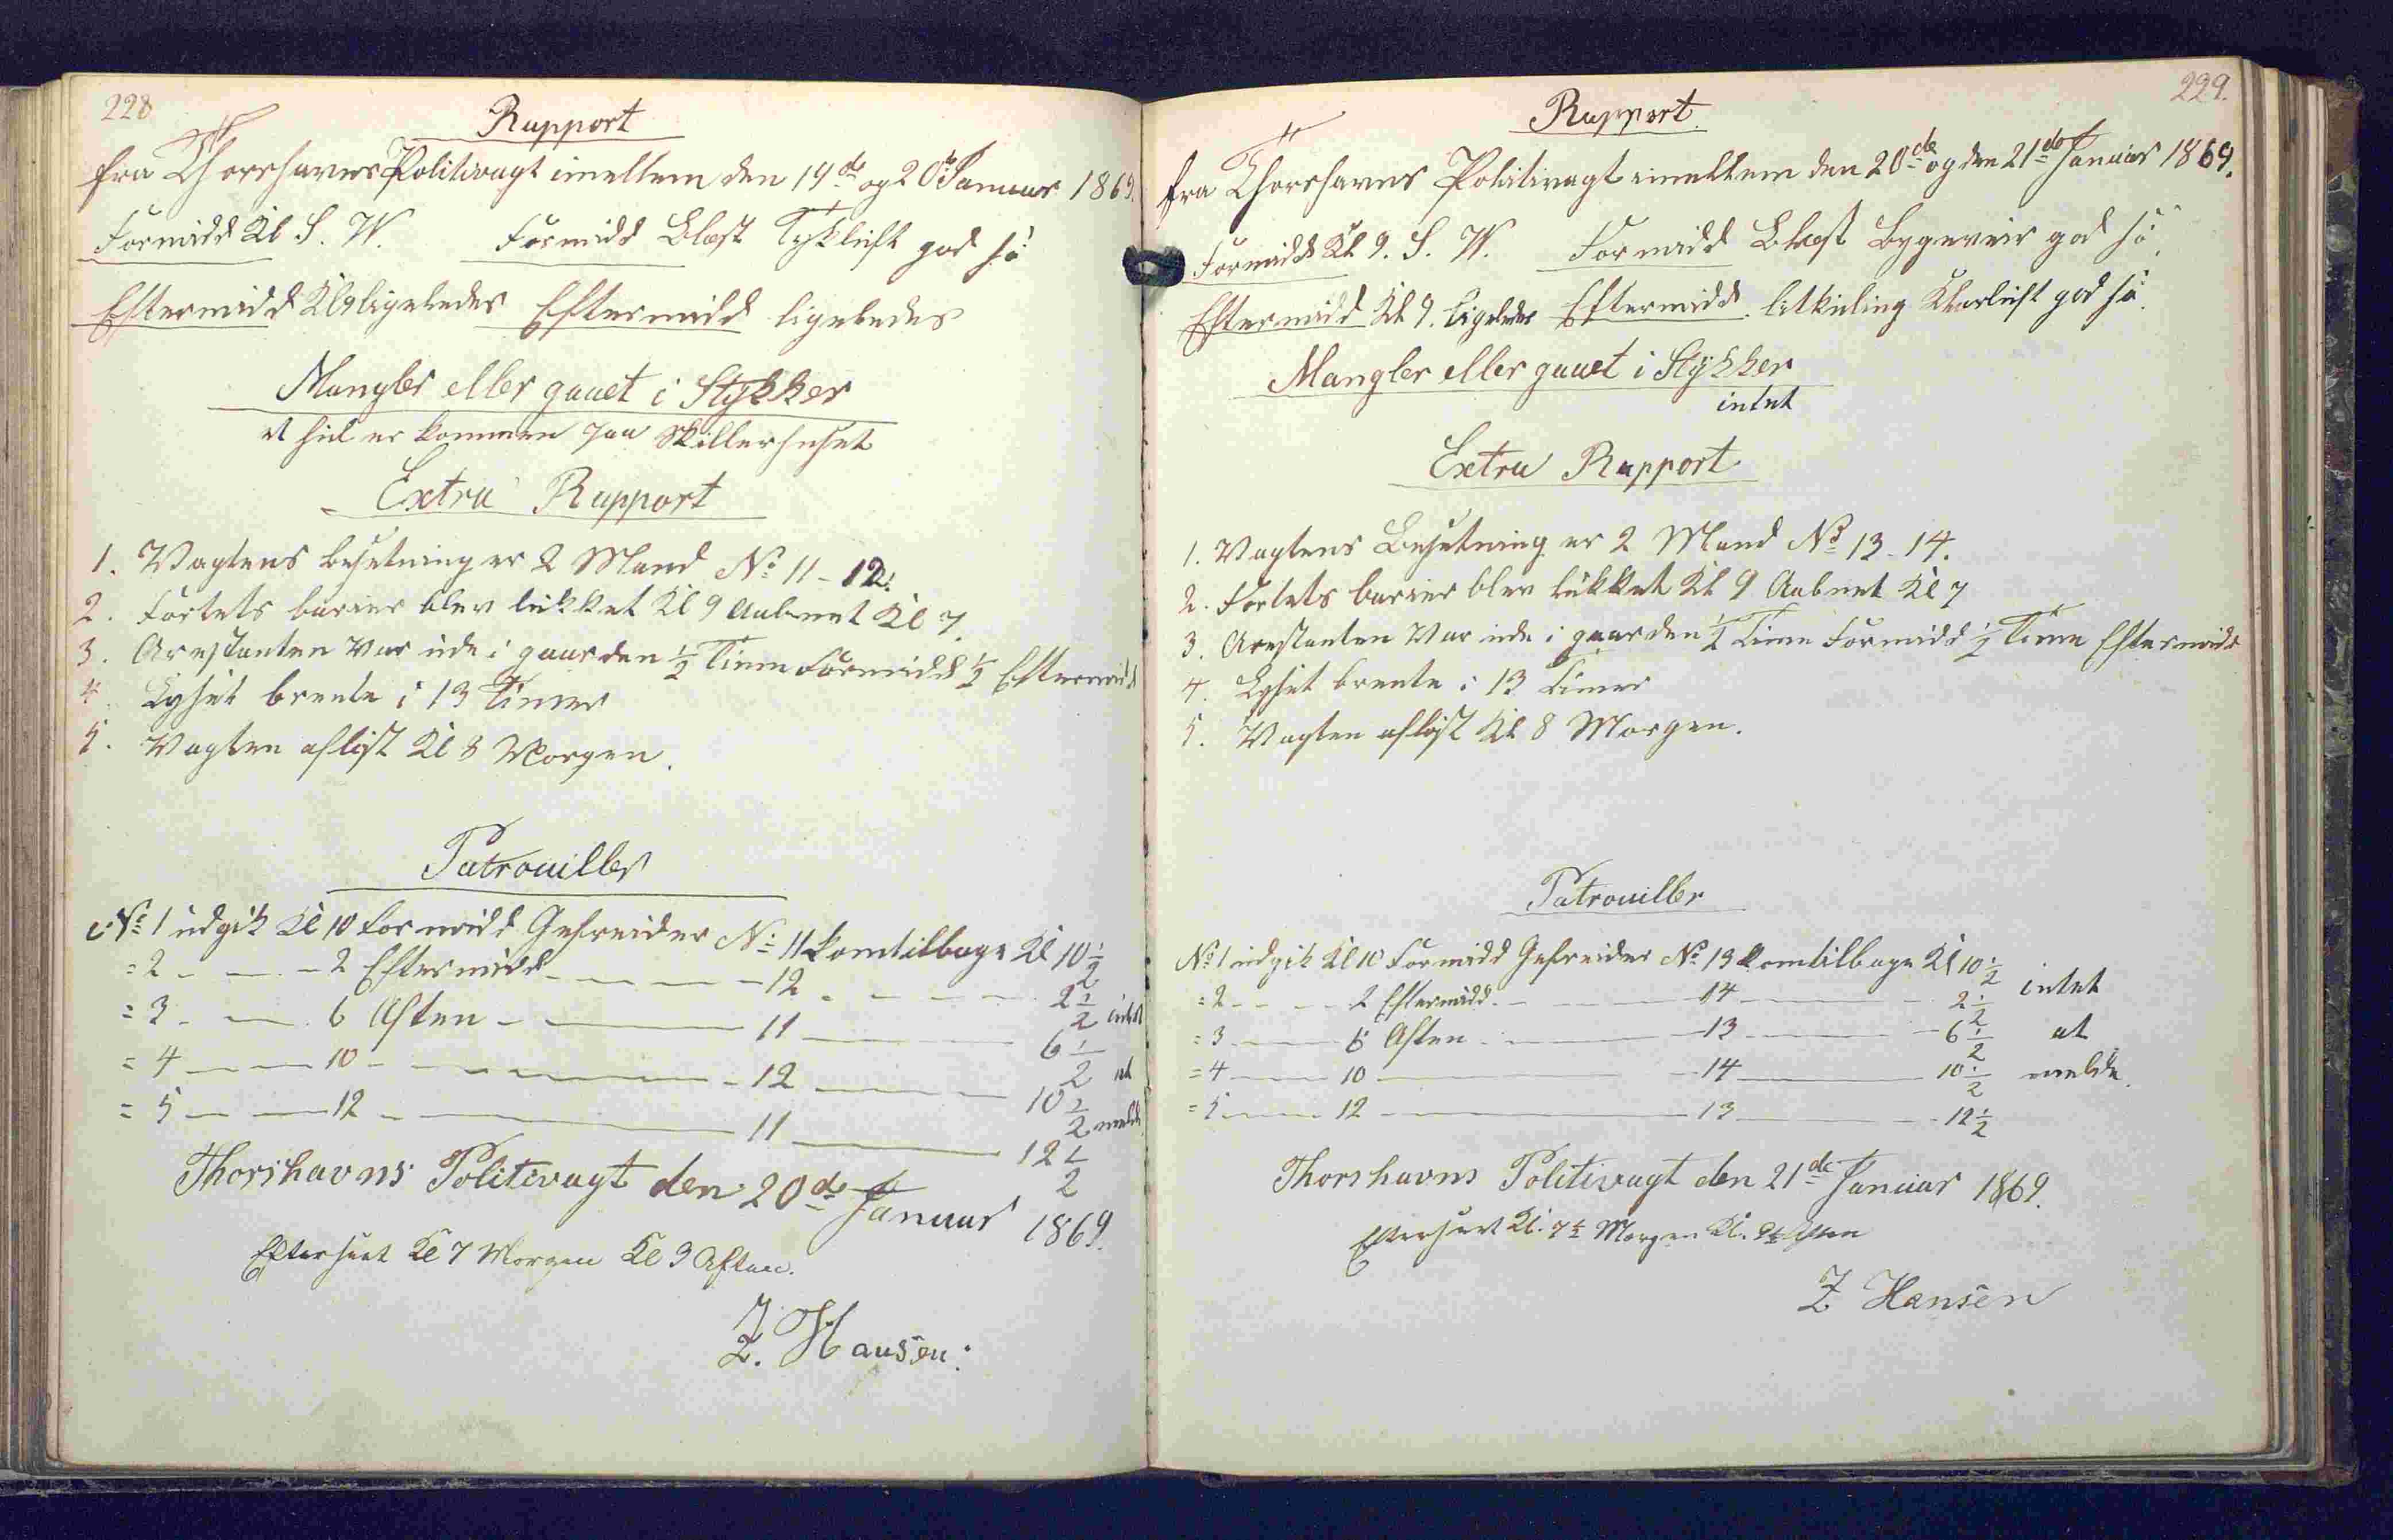 228
Rapport
fra Thorshavns Politivagt imellem den 19de og 20de Januar 1869.
Formidd Kl S. W. Formidd Blæst Tykluft god Sö
Eftermidd Kl 9 ligeledes Eftermidd ligeledes
Mangler eller gaaet i Stykker
et hul er kommen paa Skillerhuset
Extra Rapport
1. Vagtens besetning er 2 Mand No 11 - 12.
2. Fortets barier blev lukket Kl 9 Aabnet Kl 7.
3. Arestanten Var ude i gaarden ½ Time Formidd ½ Eftermidd
4. Lyset brente i 13 Timer
5. Vagten aflöst Kl 8 Morgen.
Patrouiller
No 1 udgik Kl 10 Formidd Gefreider No 11 kom tilbage Kl 10½
= 2 - — - 2 Eftermidd - — — - 12 - — — 2½ intet
= 3 - — 6 Aften - — 11 — 6½
= 4 — — 10 - — - 12 — 10½ at
= 5 — — 12 - — 11 — 12½ melde
Thorshavns Politivagt den 20de Januar 1869.
Efterseet Kl 7 Morgen Kl 9 Aften.
Z. Hansen.
229.
Rapport.
fra Thorshavns Politivagt imellem den 20de og den 21de Januar 1869.
Formidd Kl 9. S. W. Formidd Blæst Bygeveir god Sö.
Eftermidd Kl 9. ligeledes Eftermidd. litkuling Klarluft god Sö.
Mangler eller gaaet i Stykker
intet
Extra Rapport
1. Vagtens Besetning er 2 Mand No 13 - 14.
2. Fortets barier blev lukket Kl 9 Aabnet Kl 7
3. Arestanten Var ude i gaarden ½ Time Formidd ½ Time Eftermidd
4. Lyset brente i 13 Timer
5. Vagten aflöst Kl 8 Morgen.
Patrouiller
No 1 udgik Kl 10 Formidd Gefreider No 13 kom tilbage Kl 10½ intet
= 2 - - - - 2 Eftermidd. — 14 — 2½
= 3 — 6 Aften - — 13 — 6½ at
= 4 — 10 — 14 — 10½ melde.
= 5 — 12 — 13 — 12½
Thorshavns Politivagt den 21de Januar 1869.
Efterseet Kl. 7½ Morgen Kl. 9½ Aften
Z Hansen